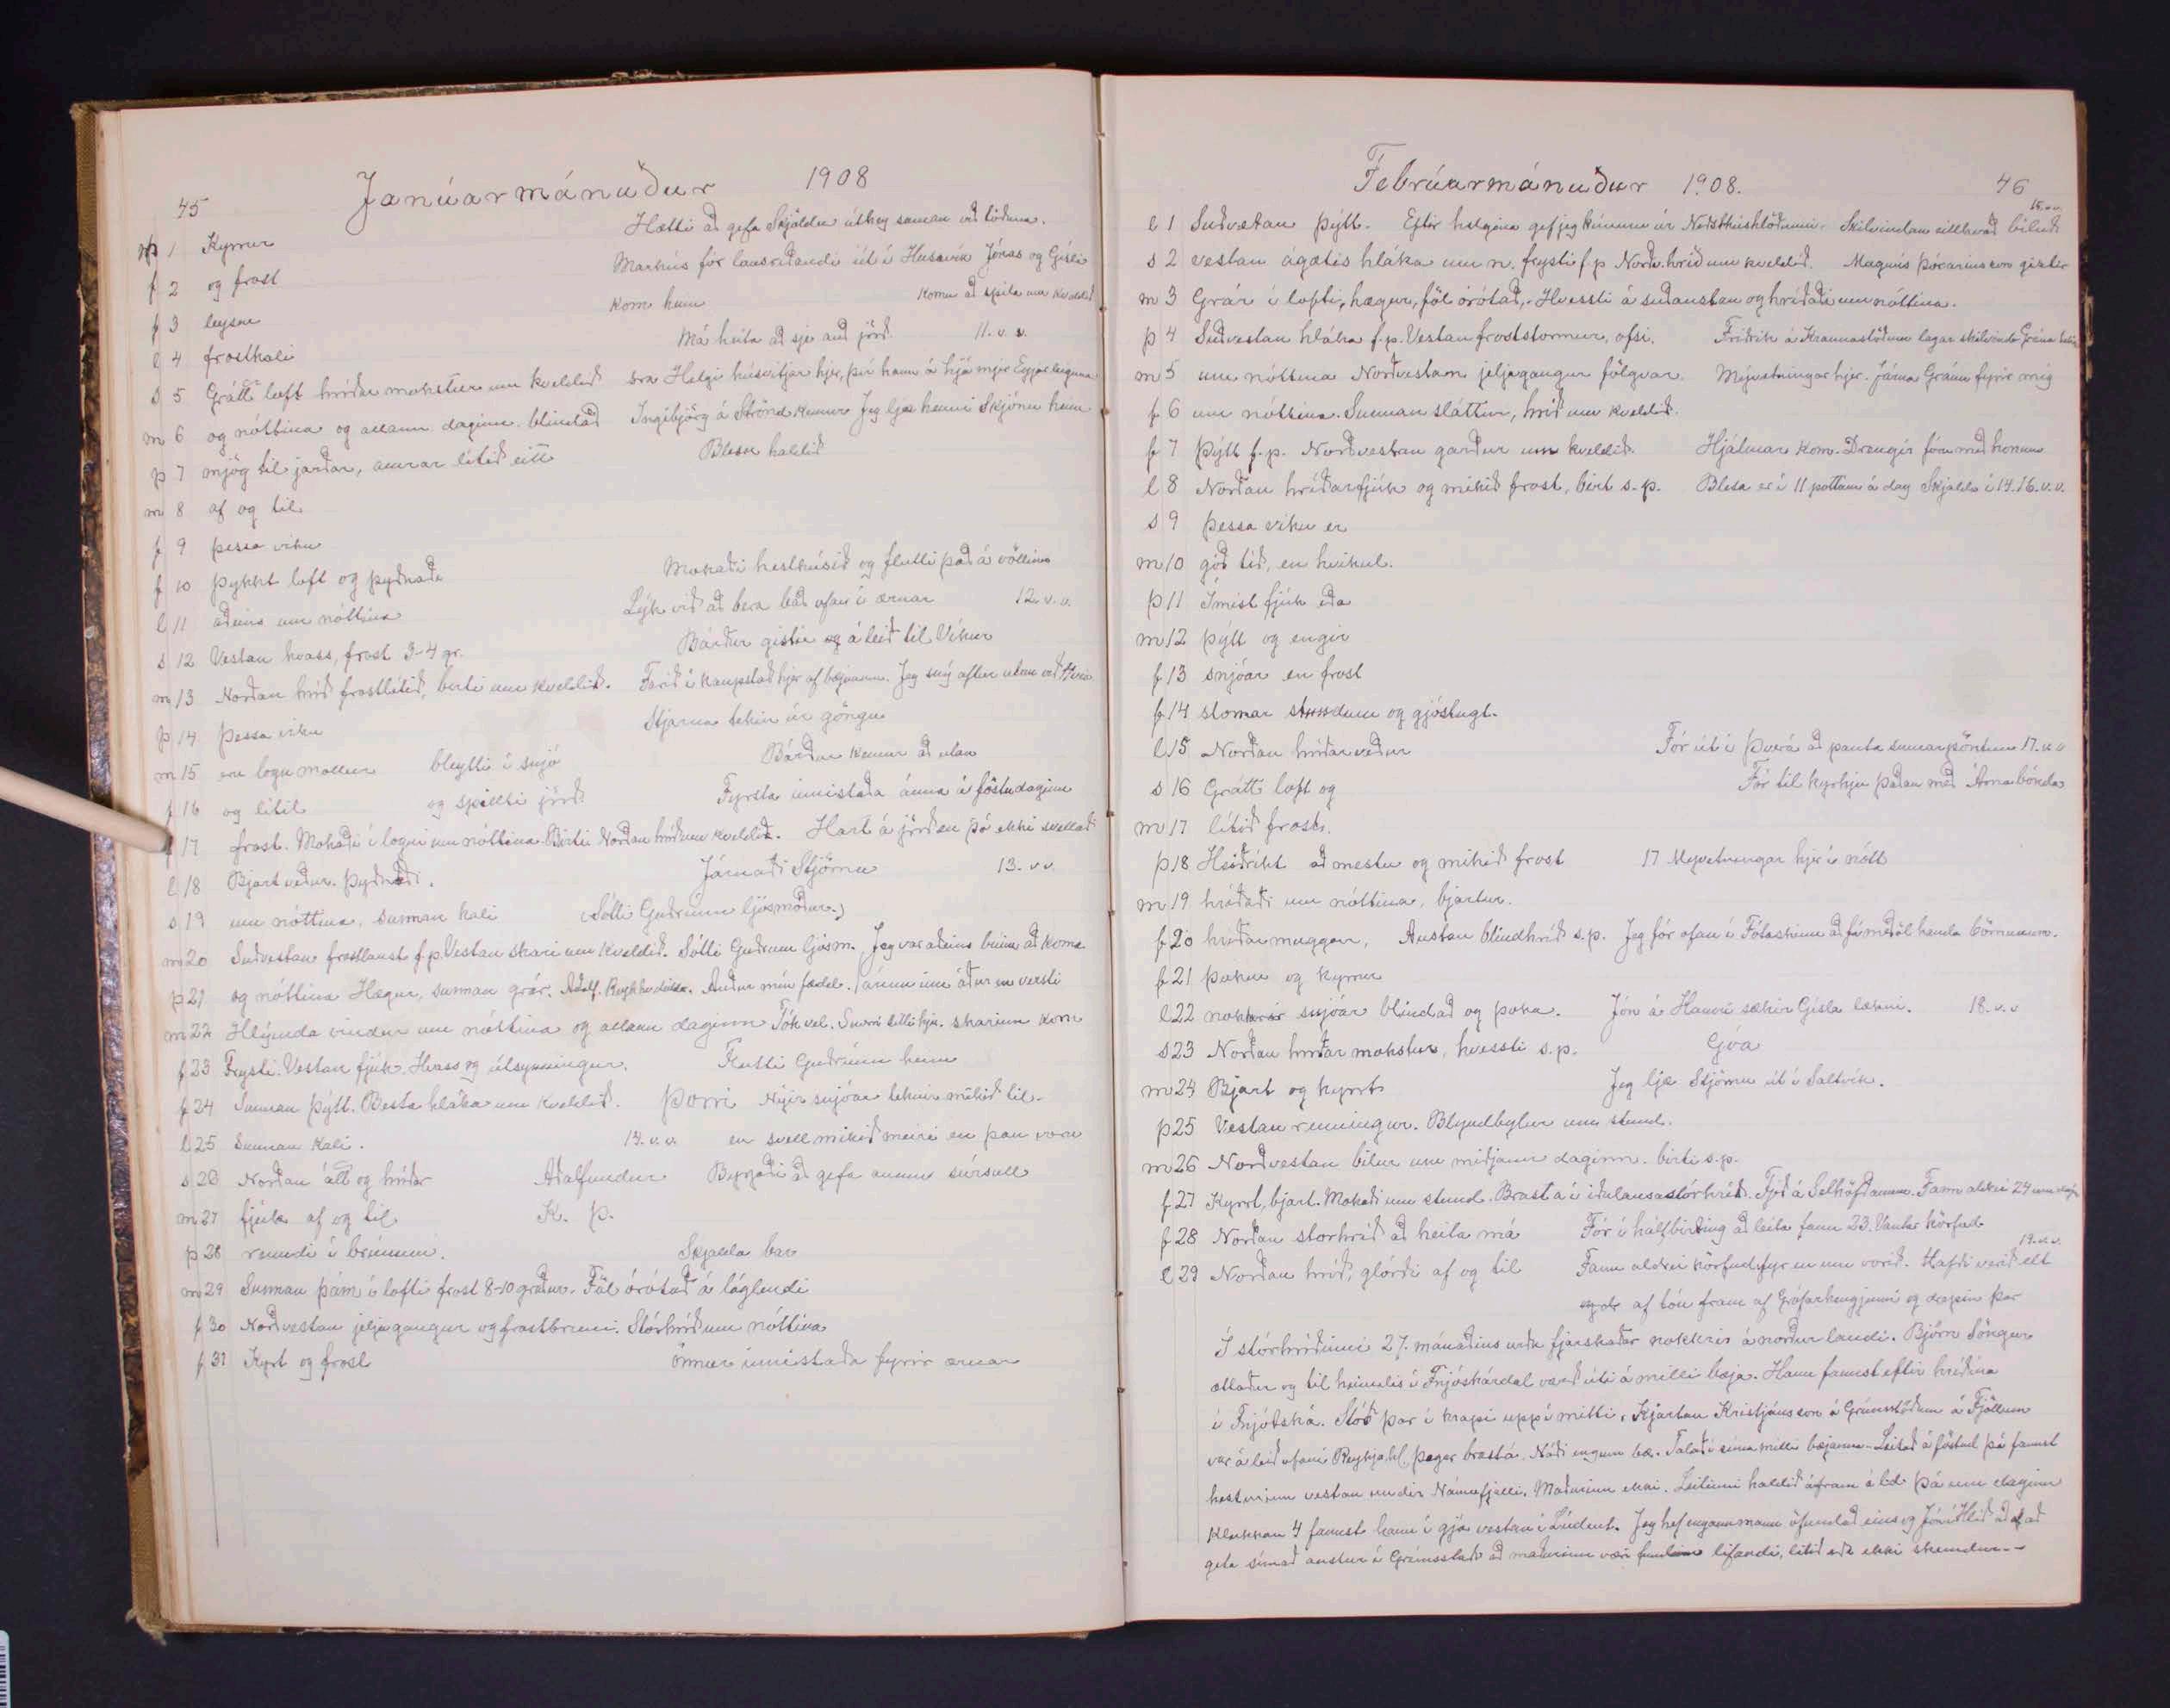 45 Janúarmánuður 1908
m 1 Kyrrur Hætti að gefa Skjöldu úthey saman við töðuna.
f 2 og frost Markús fór lausríðandi út í Húsavík Jónas og Gísli
f 3 leysur kom heim komu að spila um kveldið
l 4 frostkali Má heita að sje auð jörð. 11. v. v.
s 5 Grátt loft hríðar mokstur um kveldið sra Helgi húsvitjar hjer, þir hann á hjá mjer
m 6 og nóttina og allann daginn. blindað Ingibjörg á Strönd kemur Jeg ljæ henni Skjónu heim
þ 7 mjög til jarðar, annar lítið eitt Blesa haldið
m 8 af og til
f 9 þessa viku
f 10 þykkt loft og þyðnaði Mokaði hesthúsið og flutti það á völlinn
l 11 aðeins um nóttina Lýk við að bera bað ofan í ærnar 12. v. v.
s 12 Vestan hvass, frost 3-4 gr. Bárður gistir og á leið til Víkur
m 13 Norðan hríð frostlítið, birti um kveldið. Farið í kaupstað hjer af bæjunum. Jeg sný aftur utan við
þ 14 Þessa viku Stjarna tekin úr göngu
m 15 eru logn mollur bleytti í snjó Bárður kemur að utan
f 16 og lítil og spillti jörð Fyrsta innistaða ánna á föstudaginn
f 17 frost. Mokaði í logni um nóttina Birti Norðan hríð um kveldið. Hart á jörð en þó ekki svellað
l 18 Bjart veður. Þyðnaði. Járnaði Stjörnu 13. v v
s 19 um nóttina, sunnan kali (Sótti Guðrúnu ljósmóður.)
m 20 Suðvestan frostlaust f.p. Vestan skari um kveldið. Sótti Guðrúnu ljósm. Jeg var aðeins búinn að koma
þ 21 og nóttina Hægur, sunnan grár. Auður mín fædd. /ánum inn áður en versti
m 22 Hlýinda vindur um nóttina og allann daginn Tók vel. skarinn kom
f 23 Frysti. Vestan fjúk. Hvass og útsynningur. Flutti Guðrúnu heim
f 24 Sunnan þýtt. Besta hláka um kveldið. Þorri Nýir snjóar teknir mikið til.
l 25 Sunnan kali. 14. v. v. en svell mikið meiri en þau voru
s 26 Norðan átt og hríðar Aðalfundur Byrjaði að gefa ánum súrsull
m 27 fjúk af og til K. Þ.
þ 28 renndi í brúnunni. Skjalda bar
m 29 Sunnan þám í lofti frost 8-10 gráður. Föl órótað á láglendi
f 30 Norðvestan jeljagangur og frostbruni. Stórhríð um nóttina
f 31 Kyrt og frost Önnur innistaða fyrir ærnar
Febrúarmánuður 1908. 46
l 1 Suðvestan þýtt. Eftir helgina gef jeg kúnum úr Norðurhúshlöðunni. Skilvindan eitthvað biluð 15. v.v.
s 2 vestan ágætis hláka um n. frysti f p Norð. hríð um kveldið. Magnús Þórarinsson gistir
m 3 Grár í lofti, hægur, föl órótað. Hvessti á suðaustan og hríðaði um nóttina.
þ 4 Suðvestan hláka f. p. Vestan froststormur, ofsi. Friðrik á Kraunastöðum lagar skilvindu
m 5 um nóttina Norðvestan jeljagangur fölgvar. Mývetningar hjer. Járna Grána fyrir mig
f 6 um nóttina. Sunnan sláttur, hríð um kveldið.
f 7 Þýtt f. p. Norðvestan garður um kveldið. Hjálmar kom. Drengir fóru með honum
l 8 Norðan hríðarfjúk og mikið frost, birt s. p. Blesa er í 11 pottum á dag Skjalda í 14. 16. v. v.
s 9 Þessa viku er
m 10 góð tíð, en hvikul.
þ 11 Ímist fjúk eða
m 12 þýtt og engir
f 13 snjóar en frost
f 14 stomar stundum og gjóstugt.
l 15 Norðan hríðarveður Fór út í Þverá að panta sumarpöntun 17. v. v
s 16 Grátt loft og Fór til kyrkju þaðan með Árna bónda
m 17 lítið frost.
þ 18 Heiðríkt að mestu og mikið frost 17 Myvetningar hjer í nótt
m 19 hríðaði um nóttina, bjartur.
f 20 hríðarmuggar, Austan blindhríð s.p. Jeg fór ofan í Fótaskinn að fá meðöl handa börnunum.
f 21 þokur og kyrrur
l 22 nokkrir snjóar blindað og þoka. Jón á Hamri sækir Gísla lækni. 18. v. v
s 23 Norðan hríðar mokstur, hvessti s. p. Góa
m 24 Bjart og kyrrt Jeg ljæ Stjörnu út í Saltvík.
þ 25 Vestan renningur. Blyndbylur um stund.
m 26 Norðvestan bilur um miðjann daginn. birti s.p.
f 27 Kyrrt, bjart. Mokaði um stund. Brast á í iðulausa stórhríð. Tjóð á Selhöfðanum. Fann aldrei 24
f 28 Norðan stórhríð að heita má Fór í hálfbirting að leita fann 23. Vantar hörfud
l 29 Norðan hríð, glórði af og til Fann aldrei hörfud fyr en um vorið. Hafði verið elt 19. v. v.
af tóu fram af Grófarhengjunni og drepin þar
Í stórhríðinni 27. mánaðins urðu fjárskaðar nokkrir á norður landi. Björn Söngur
ættaður og til heimilis í Fnjóskárdal varð úti á milli bæja. Hann fannst eftir hríðina
í Fnjóská. Stóð þar í krapi upp í mitti. Kjartan Kristjánsson á Grímsstöðum á Fjöllum
var á leið ofan í Reykjahl. þegar brast á. Náði engum bæ. Talað í síma milli bæjanna. Leitað á föstud þá fannst
hesturinn vestan undir Námufjalli. Maðurinn ekki. Leitinni haldið áfram á ld Þá um daginn
klukkan 4 fannst hann í gjá vestan í Lúdent. Jeg hef engann mann öfundað eins og Jón í Hlíð að að
geta símað austur í Grímsstaði að maðurinn væri fundinn lifandi, lítið eða ekki skemdur--